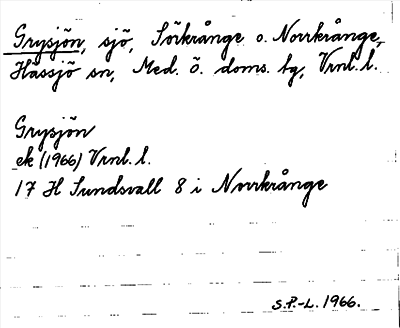 Grysjön, sjö, Sörkrånge o. Norrkrånge,
Hässjö sn, Med. ö. doms. tg, Vrnl. l.
Grysjön
ek (1966) Vrnl. l.
17 H Sundsvall 8 i Norrkrånge
S.P.-L. 1966.